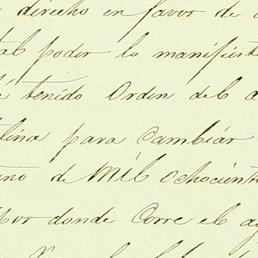 derecho en favor de
tal poder lo manifieste
tenido Orden del a
lina para Cambiár
de Mil ochocient
por donde Corre el ag